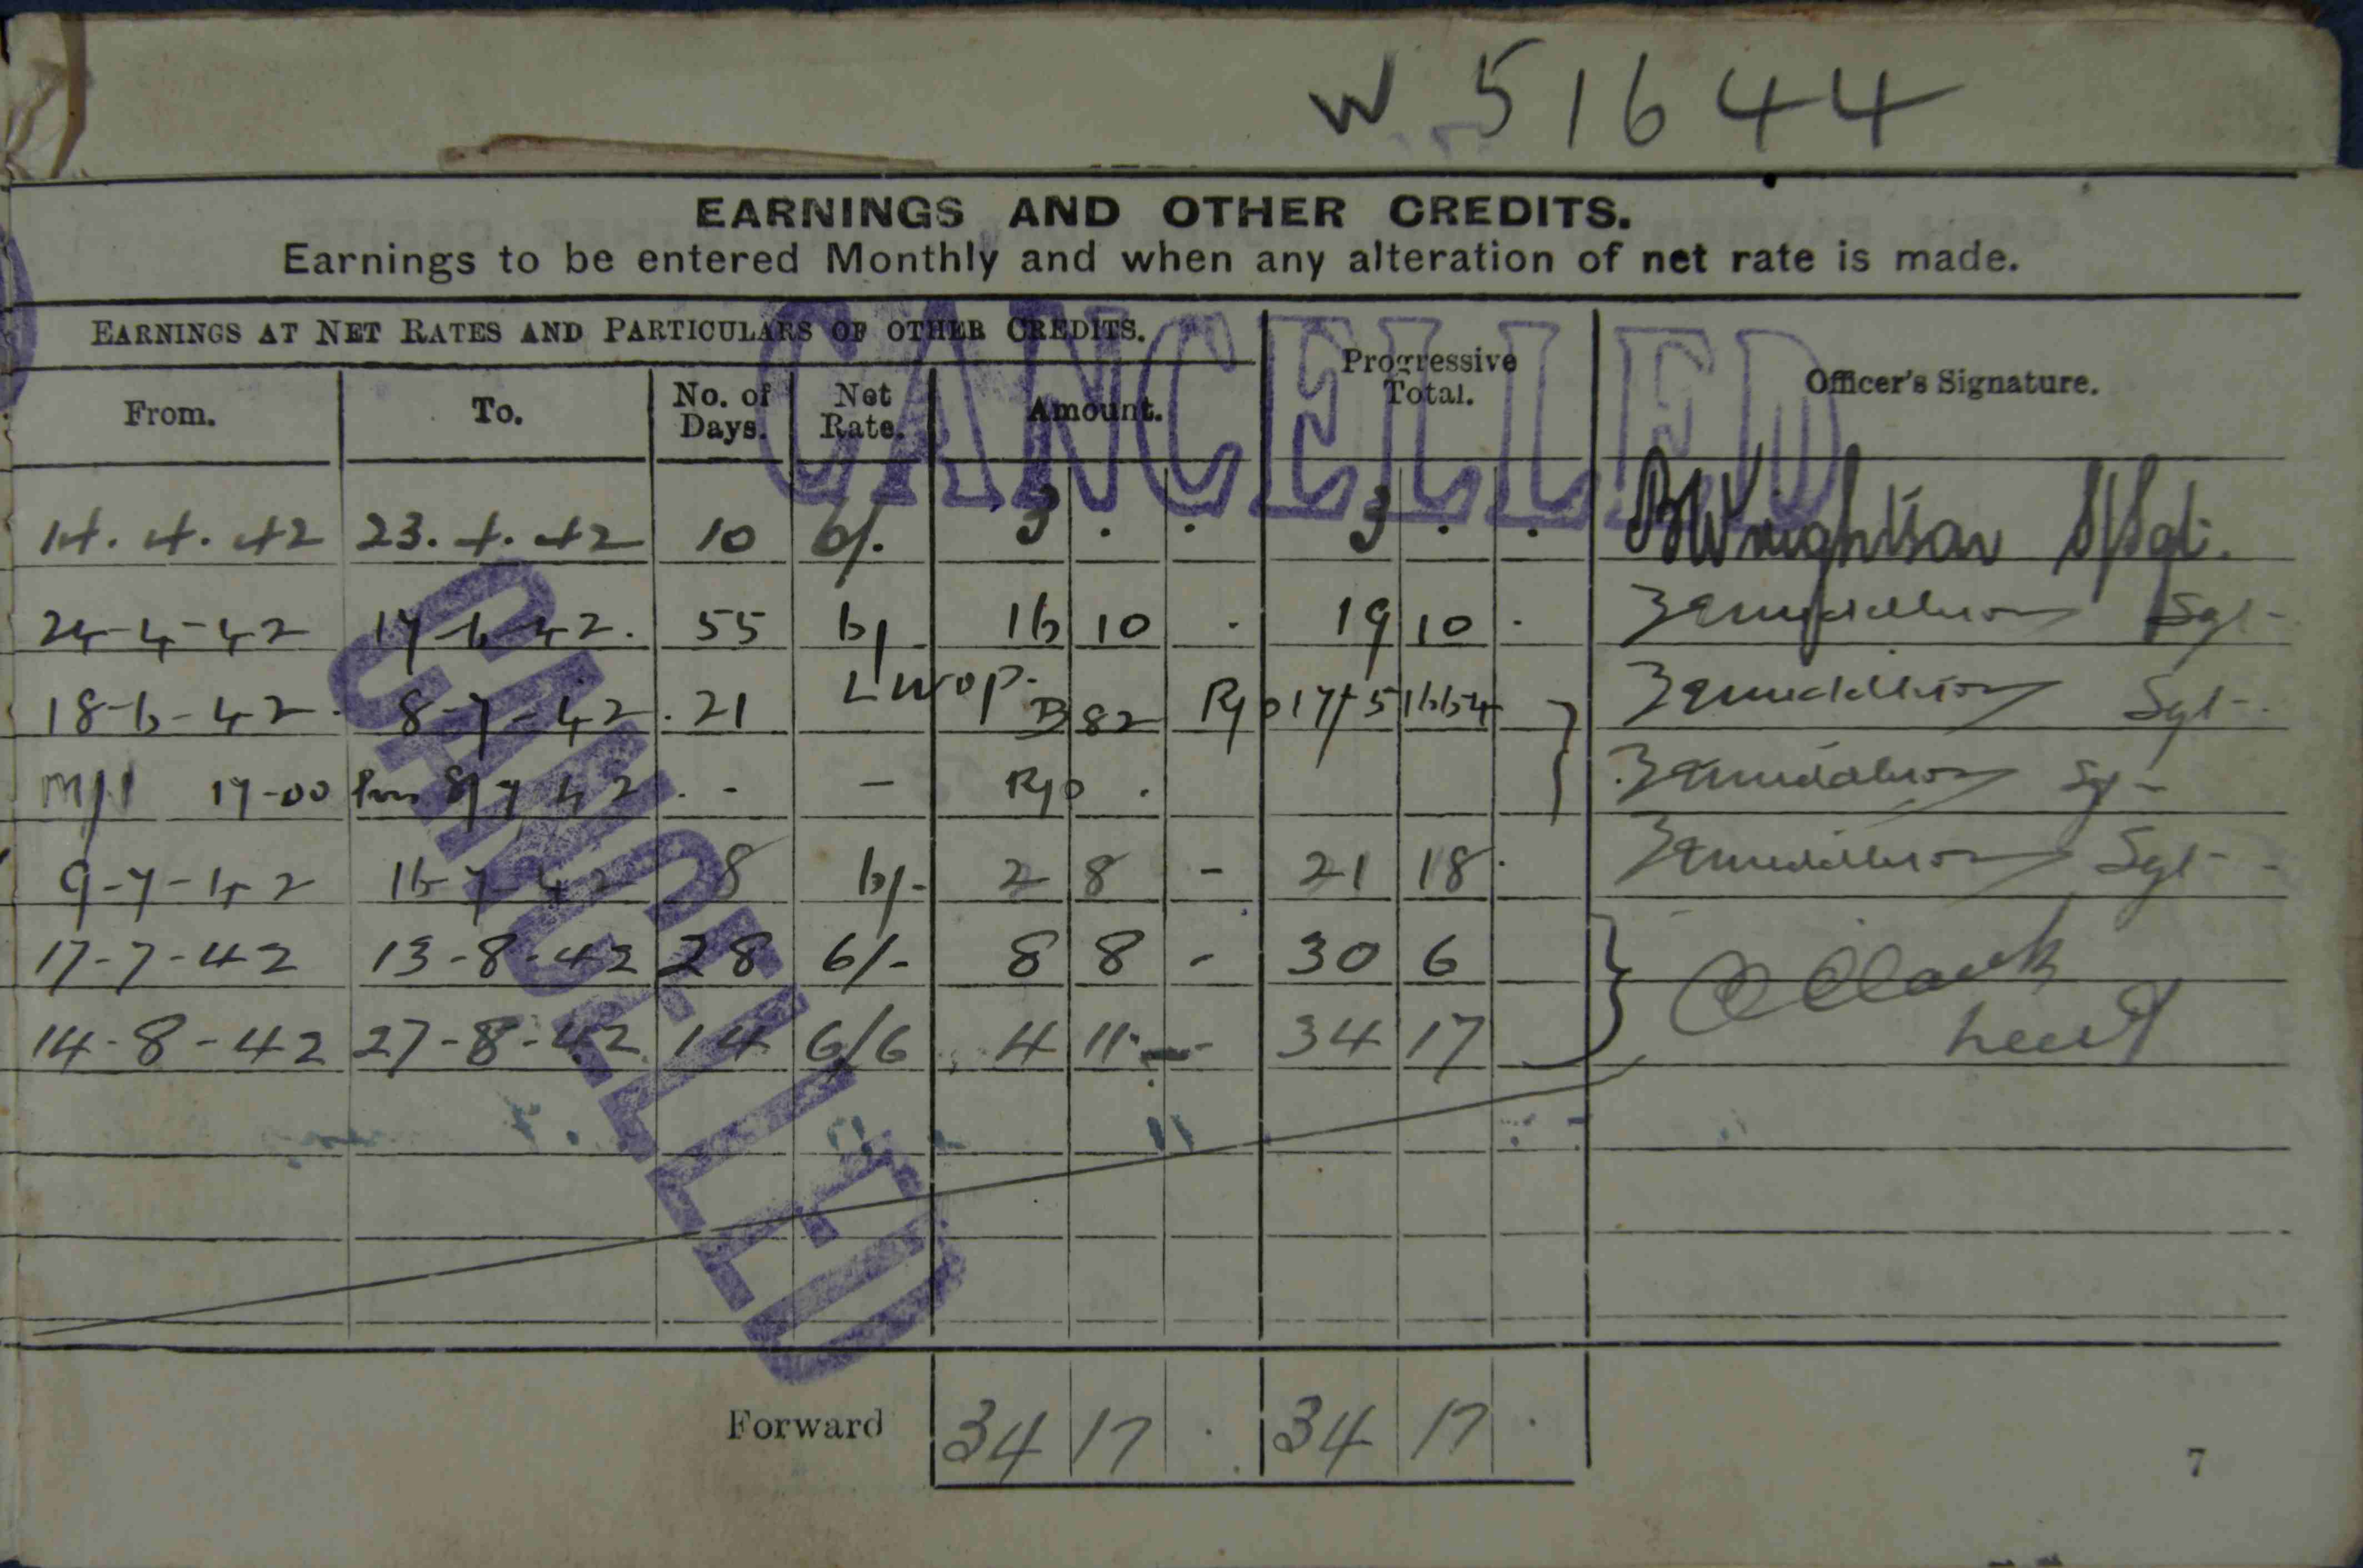 W 51644
EARNINGS AND OTHER CREDITS.
Earnings to be entered Monthly and when any alteration of net rate is made.
EARNINGS AT NET RATES AND PARTICULARS OF OTHER CREDITS.
Progressive Total.
Officer's Signature.
From. To. No. of Days. Net Rate. Amount.
CANCELLED
14.4.42 23.4.42 10 6/. 3 . . 3 . . S/Sgt.
24-4-42 17-6-42. 55 6/ 16 10 . 19 10 . Sgt-
18-6-42. 8-7-42. 21 LWOP. B 82 Sgt-.
17-00 8/7 42 . - - R/o . Sgt-
9-7-42 16-7-42 8 6/- 2 8 - 21 18. Sgt-
17-7-42 13-8-42 28 6/- 8 8 - 30 6
14-8-42 27-8-42 14 6/6 4 11 - 34 17
Clark
Lieut
CANCELLED
Forward 34 17 . 34 17 .
7